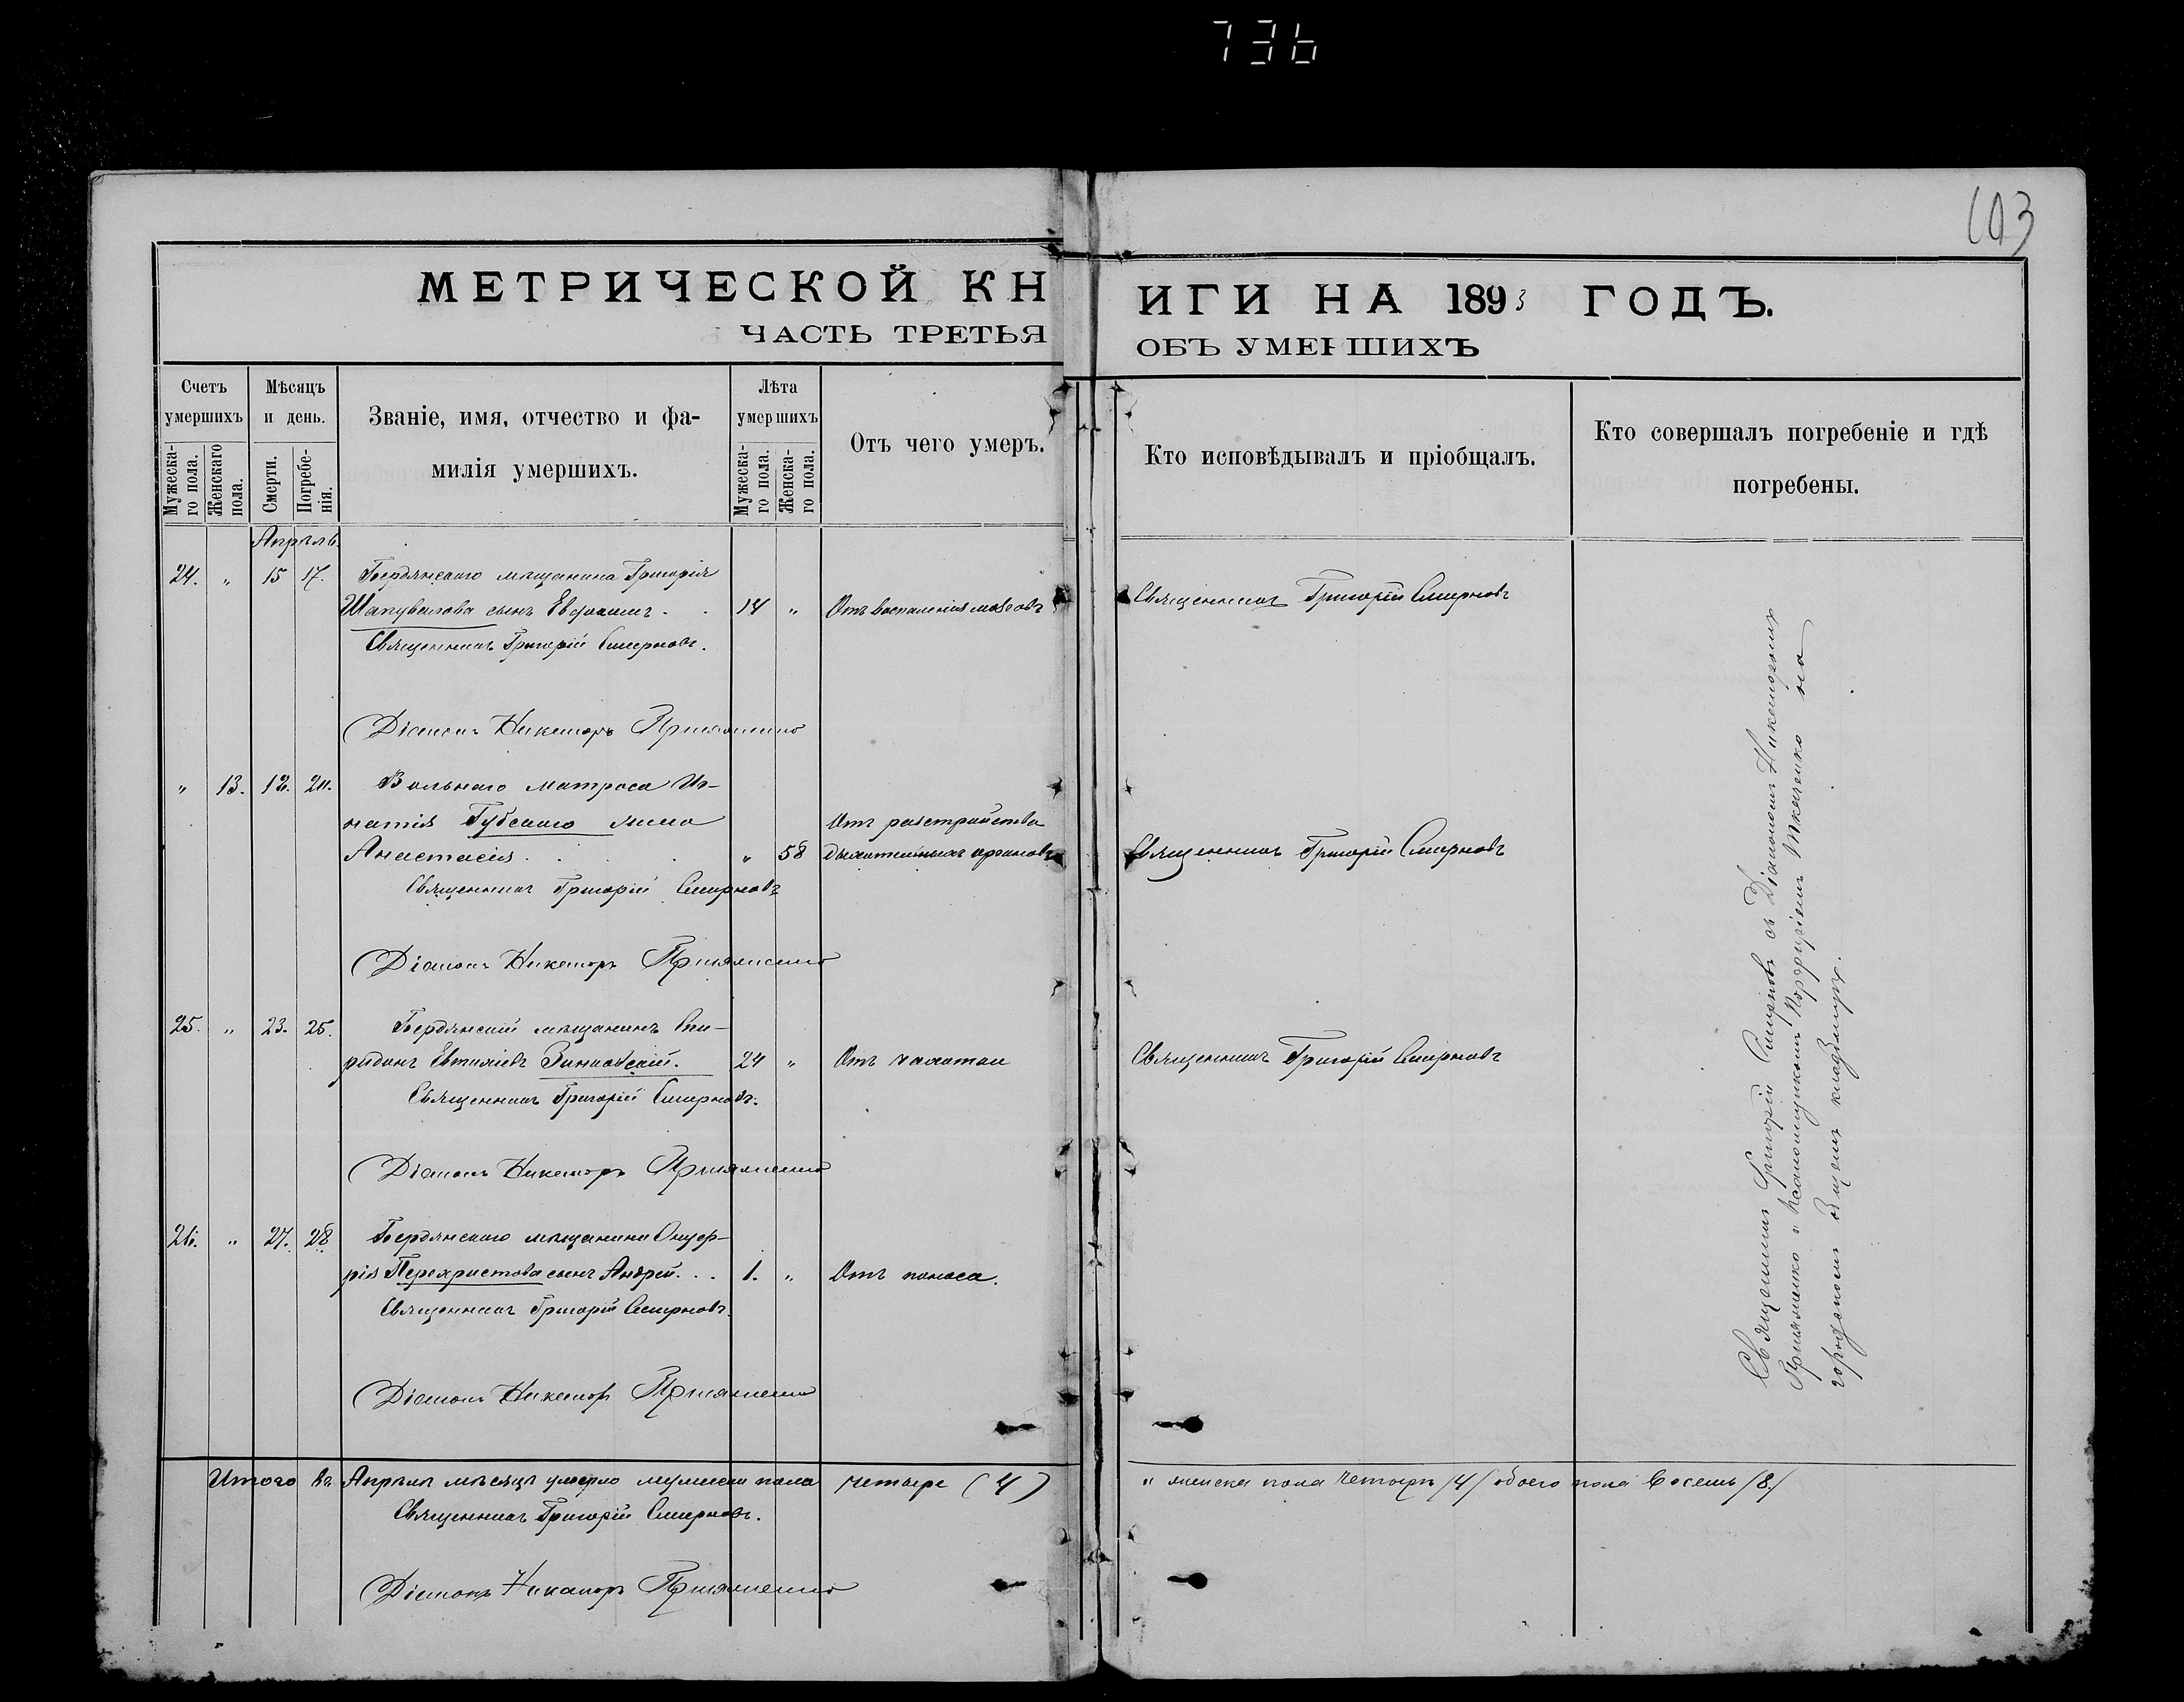 736
103
МЕТРИЧЕСКОЙ КНИГИ НА 1893 ГОДЪ.
ЧАСТЬ ТРЕТЬЯ ОБЪ УМЕРШИХЪ
Счетъ умершихъ
Мужескаго пола.
Женскаго пола.
Мѣсяцъ и день.
Смерти.
Погребенія.
Званіе, имя, отчество и фамилія умершихъ.
Лѣта умершихъ
Мужескаго пола.
Женскаго пола.
Отъ чего умеръ.
Кто исповѣдывалъ и пріобщалъ.
Кто совершалъ погребеніе и гдѣ погребены.
Апрѣль.
24. " 15 17. Бердянскаго мѣщанина Григорія
Шаповалова сынъ Евфимъ . . 14 " Отъ воспаленія мозговъ Священникъ Григорій Смирновъ
Священникъ Григорій Смирновъ.
Діаконъ Никаноръ
" 13. 18. 20. Вольнаго матроса Иг-
натія Губскаго жена Отъ разстройства
Анастасія . . . " 58 дыхательныхъ органовъ Священникъ Григорій Смирновъ
Священникъ Григорій Смирновъ
Діаконъ Никаноръ
25. " 23. 25. Бердянскій мѣщанинъ Спи-
ридонъ Евтихіевъ 24 " Отъ чахотки Священникъ Григорій Смирновъ
Священникъ Григорій Смирновъ.
Діаконъ Никаноръ
26. " 27. 28. Бердянскаго мѣщанина Онуф-
рія Перехристова сынъ Андрей. . . 1. " Отъ поноса.
Священникъ Григорій Смирновъ.
Діаконъ Никаноръ
Священникъ Григорій Смирновъ съ Діакономъ Никаноромъ
и псаломщикомъ Порфиріемъ Ткаченко на
городскомъ общемъ кладбищѣ.
Итого въ Апрѣлѣ мѣсяцѣ умерло мужеска пола четыре (4) " женска пола четыре /4/ обоего пола восемь /8/
Священникъ Григорій Смирновъ.
Діаконъ Никаноръ